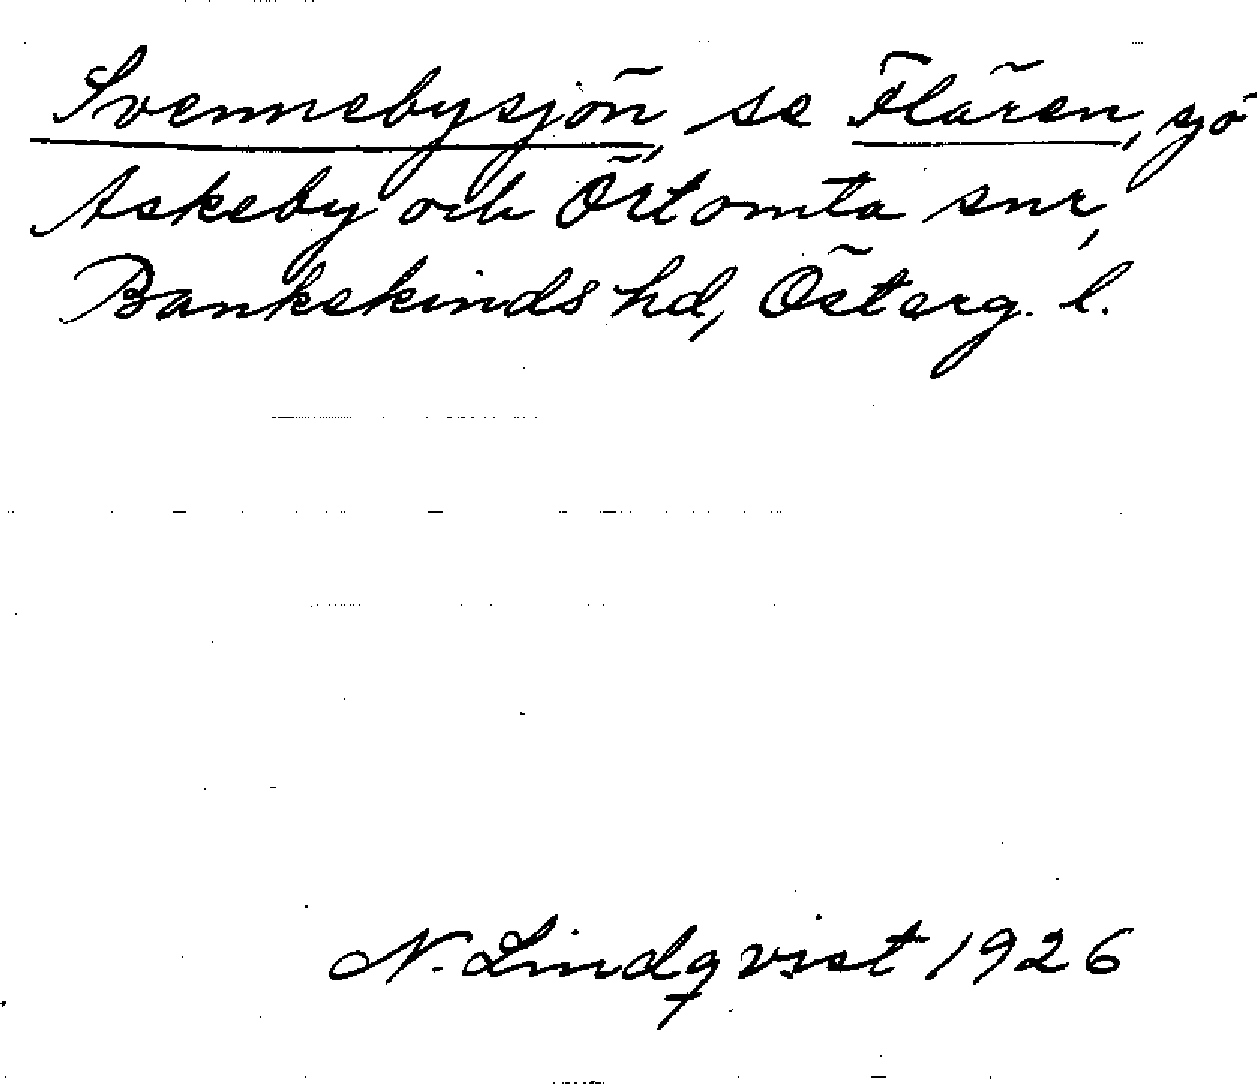 Svennebysjön, se Flären, sjö
Askeby och Örtomta snr,
Bankekinds hd, Österg. l.
N. Lindqvist 1926